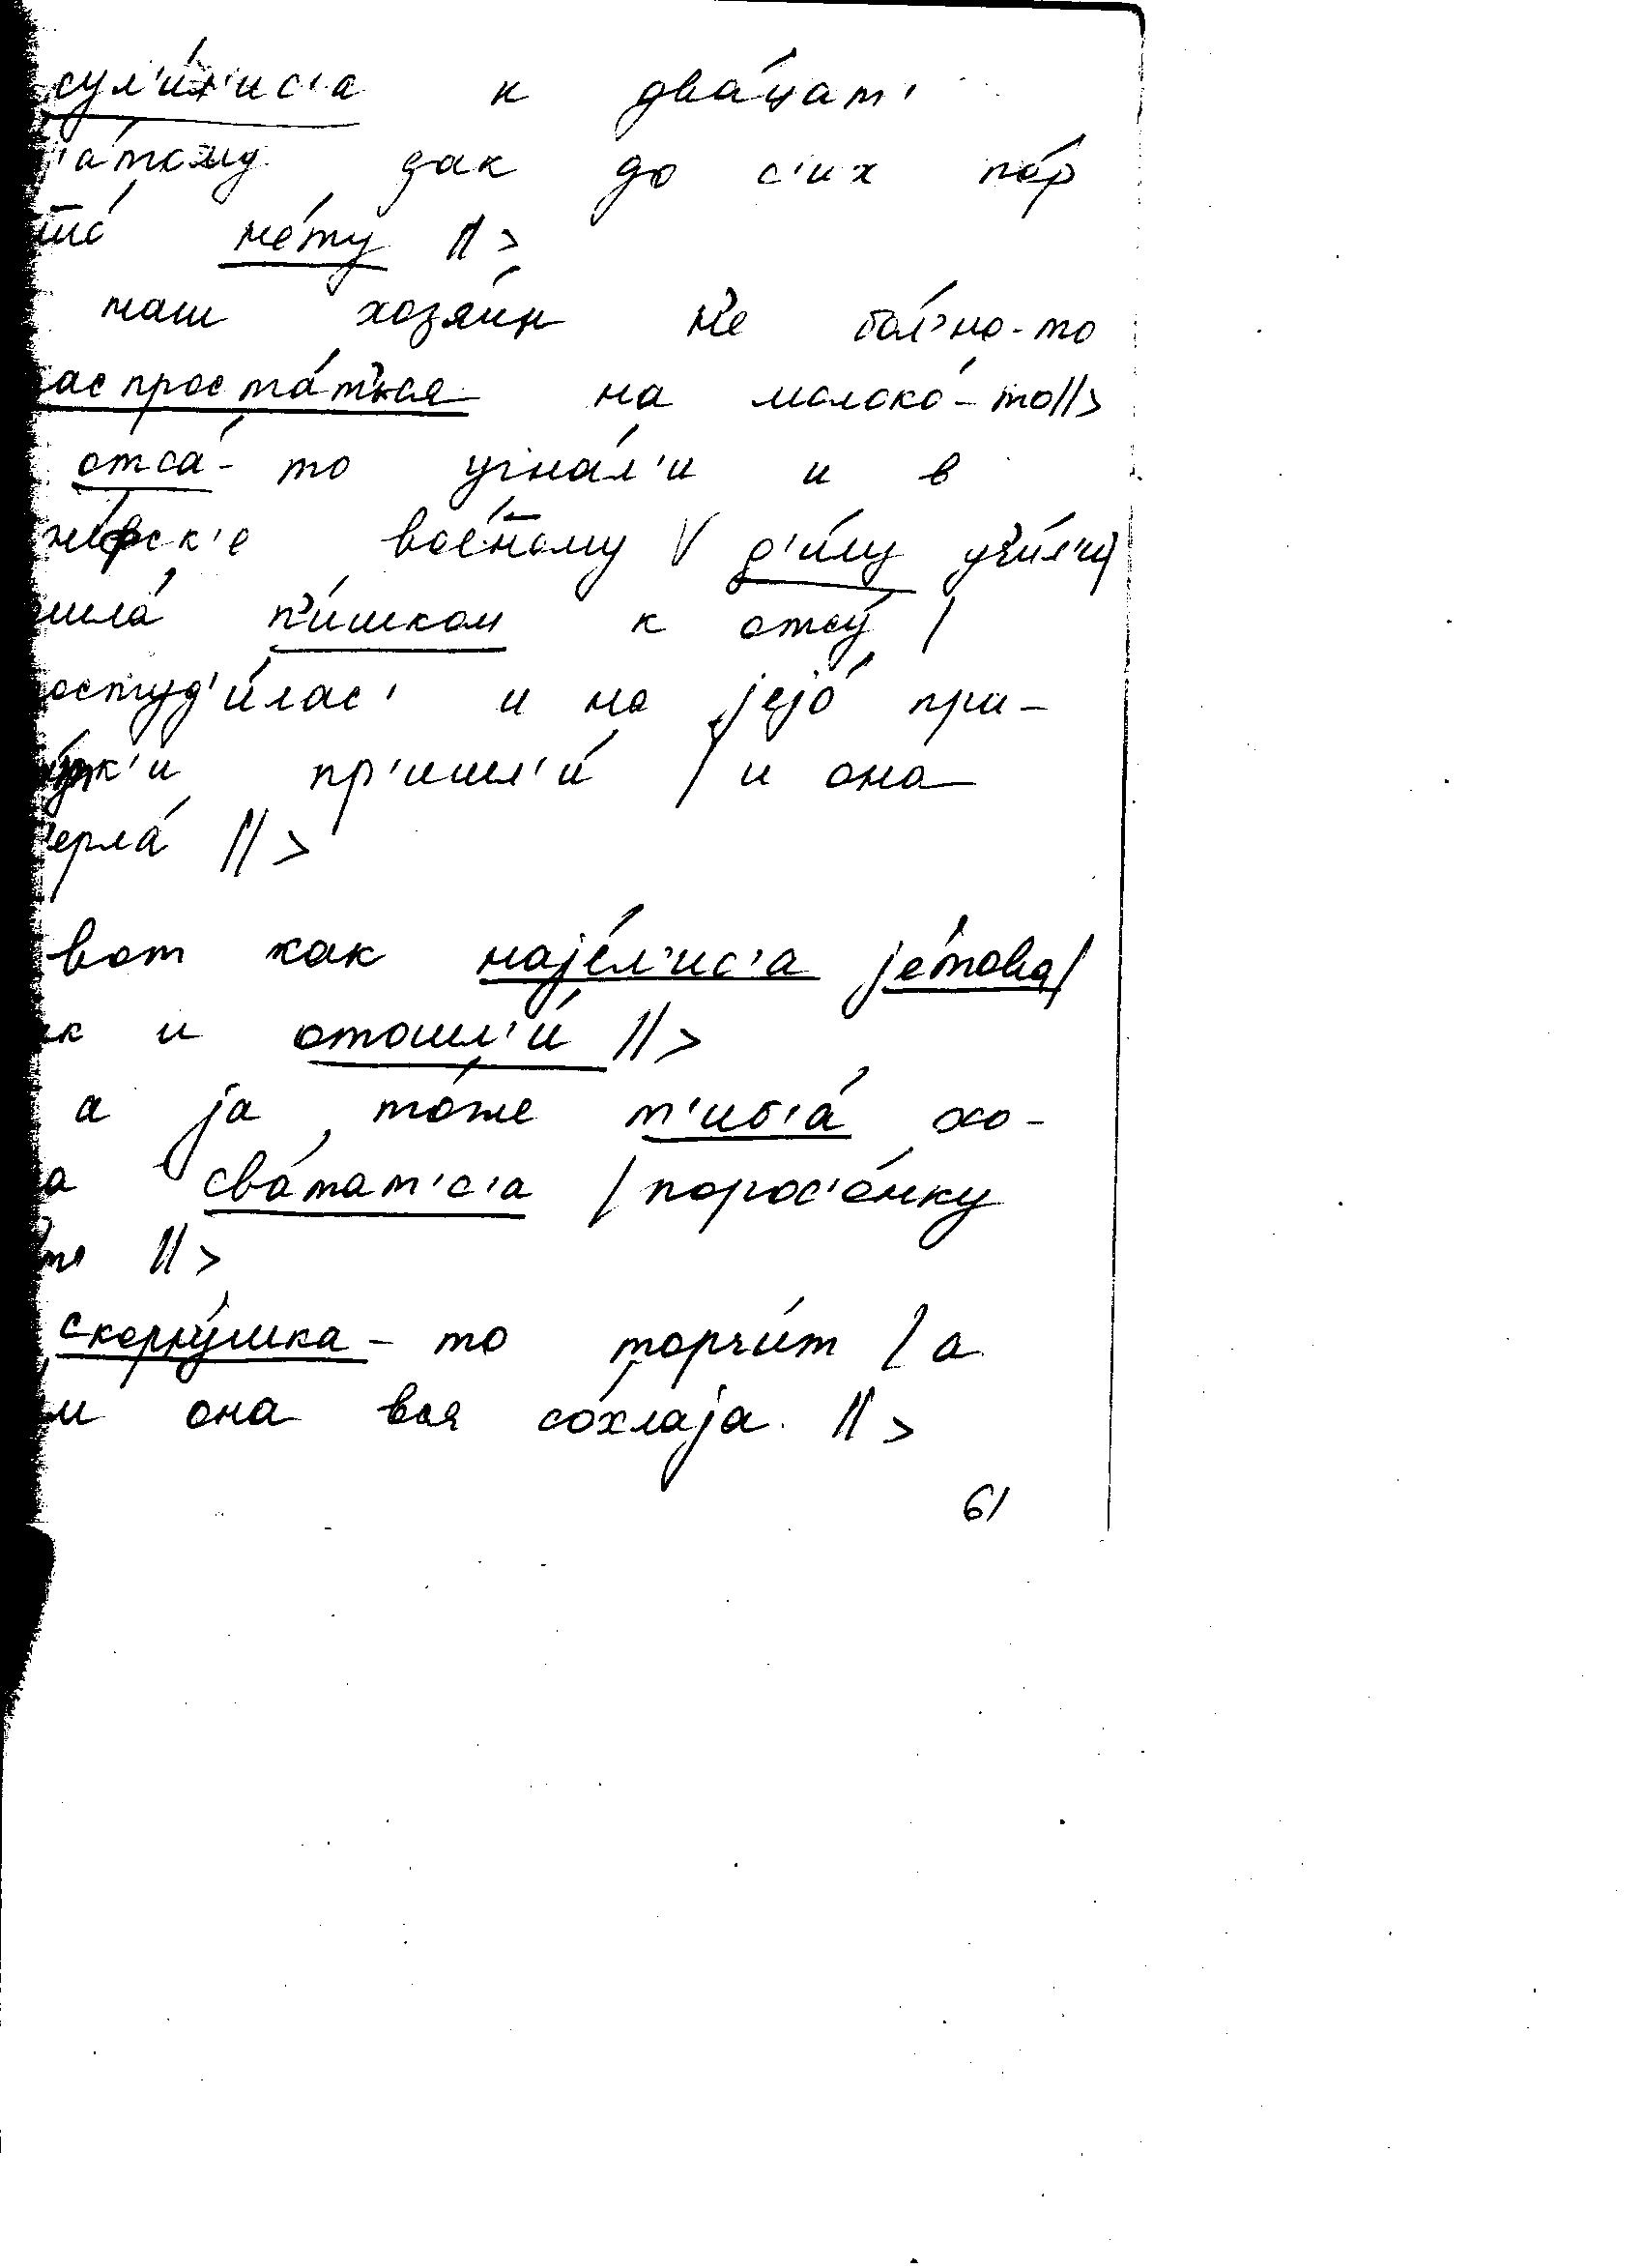 сул'и́л'ис'а к два́цат'
'а́тому дак до с'их по́р
не́ту ||>
наш хозя́ин н'е бо́л'но-то
аспроста́ться на молоко́-то||>
отса́-то угна́л'и и в
вое́ному V д'и́лу учи́л'и|
шла́ п'и́шком к отсу́ |
остуд'и́лас' и на jejó при-
к'и пр'ишл'и́ | и она
ерла́ ||>
вот как наjе́л'ис'а jе́това|
к и отошл'и́ ||>
а jа то́же т'иб'а́ хо-
а сва́тат'с'а | порос'о́нку
||>
скорлу́шка-то торчи́т | а
и она вся со́хлаjа. ||>
61